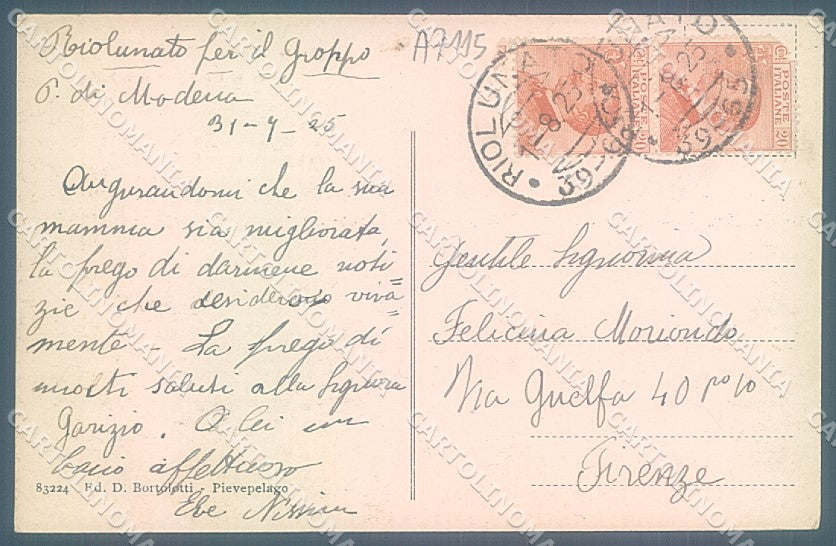 Riolunato per il Groppo
P. di Modena
31-7-25
Augurandomi che la sua
mamma sia migliorata,
la prego di darmene noti=
zie che desidero viva=
mente - La prego di
molti saluti alla Signora
Garizio. A lei un
bacio affettuoso
83224 Ed. D. Bortolotti - Pievepelago
Eve
A7115
POSTE ITALIANE
20
POSTE ITALIANE
20
RIOLUNATO
Gentile Signorina
Felicina Moriondo
Via Guelfa 40 pº 1o
Firenze
CARTOLINOMANIA